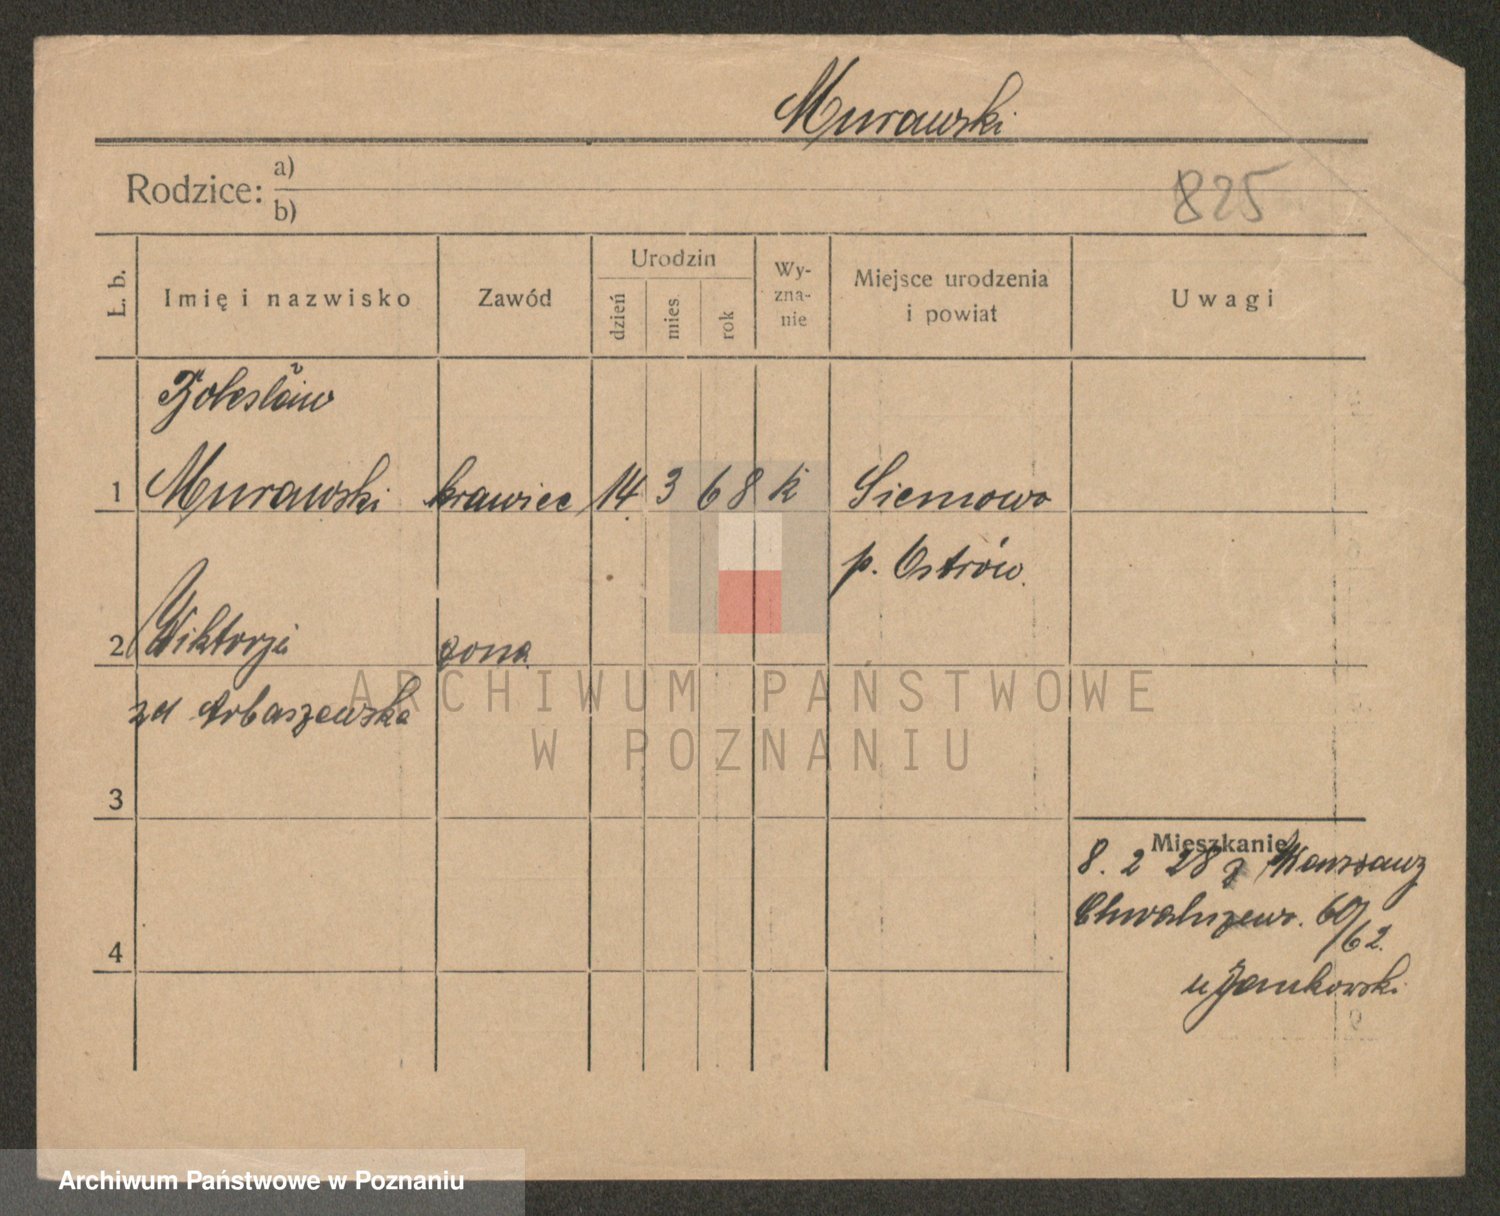 Murawski
Rodzice: a)
b)
825
L. b.
Imię i nazwisko
Zawód
Urodzin
dzień
mies.
rok
Wy-
zna-
nie
Miejsce urodzenia
i powiat
Uwagi
Bolesław
1 Murawski krawiec 14 3 68 k Siemowo
p. Ostrów.
2 Wiktorja żona
zd Arbaszewska
3
4
Mieszkanie
8. 2 28 z Warszawy
Chwaliszewo. 60/62.
u Jankowski
ARCHIWUM PAŃSTWOWE
W POZNANIU
Archiwum Państwowe w Poznaniu